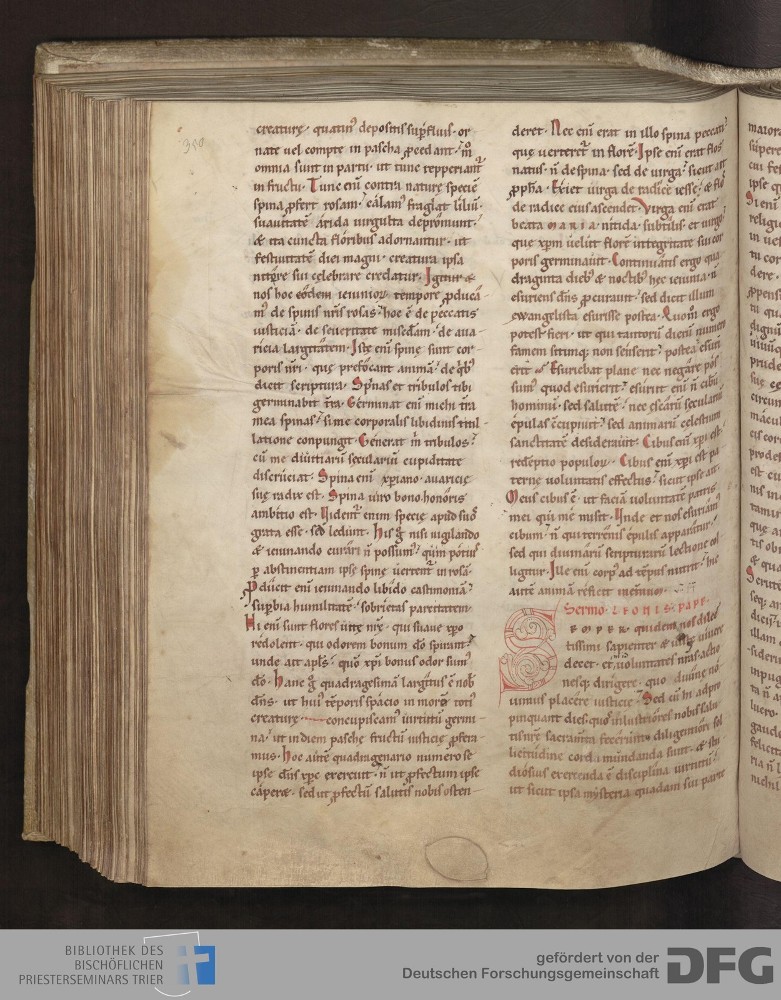 350
creaturę· quatin᷒ depositis sup̄fluis· or
nate uel compte in pascha ꝓcedant·
omnia sunt in partu· ut tunc repperiant᷑
in fructu· Tunc eni contra naturę speciē
spina ꝓfert rosam· calam᷒ fraglat liliū·
suauitatē arida uirgulta depromunt·
& ita cuncta floribus adornantur· ut
festiuitatē diei magni· creatura ipsa
sui celebrare credatur· Igitur &
nos hoc eodem ieiuniorꝝ tempore ꝓducam᷒
de spinis nr̄is rosas· hoc ē de peccatis
iusticiā· de seueritate misc̄dam· de aua-
ricia largitatem· Istę eni spinę sunt cor-
poris nr̄i· quę prefocant animā· de qb᷒
dicit scriptura· Spinas et tribulos tibi
germinabit tr̄a· Germinat eni michi tr̄a
mea spinas· si me corporalis libidinis titil-
latione conpungit· Generat m̄ tribulos·
cū me diuitiarū seculariū cupiditate
discruciat· Spina eni xp̄iano· auaricię
suę radix est· Spina uiro bono· honoris
ambitio est· Videnť enim specię apud suos
grata esse· sed ledunt· His g̊ nisi uigilando
& ieiunando curari n̄ possum᷒· quin potius
ꝑ abstinentiam ipsę spinę uertent᷑ in rosā·
Ꝓducit eni ieiunando libido castimoniā·
sup̄bia humilitatē· sobrietas parcitatem·
Hi eni sunt flores uitę nrę· qui suaue xp̄o
redolent· qui odorem bonum do spirant·
unde ait apl̄s· quō xp̄i bonus odor sum᷒
do· Hanc g̊ quadragesimā largitus ē nob̄
dn̄s· ut hui᷒ temporis spacio in morē toti᷒
creaturę concupiscam᷒ uirtutū germi-
na· ut in diem paschę fructū iusticię ꝓfera-
mus· Hoc autē quadragenario numero se
ipse dn̄s xp̄c exercuit· n̄ ut ꝓfectum ipse
caperet· sed ut ꝓfectū salutis nobis osten-
deret· Nec eni erat in illo spina peccati·
quę uerteret᷑ in florē· Ipse eni erat flos
natus· n̄ de spina· sed de uirga· sicut ait
ꝓpha· Exiet uirga de radice iesse· & flos
de radice eius ascendet· Virga eni erat
beata MARIA· nitida· subtilis et uirgo·
quę xp̄m uelut florē integritate sui cor
poris germinauit· Continuatis ergo qua-
draginta dieb᷒ & noctib᷒ hec ieiunia· n̄
esuriens dn̄s ꝓcurauit· sed dicit illum
ewangelista esurisse postea· Quom̊ ergo
potest fieri· ut qui tantorū dierū numero
famem sitimq; non senserit· postea esuri
erit· Esuriebat plane nec negare pos
sum᷒ quod esurierit· esuriit eni n̄ cibū
hominū· sed salutē· nec escarū seculariū
epulas cupiuit· sed animarū celestium
sanctitatē desiderauit· Cibus eni xp̄i est·
redēptio populorꝝ· Cibus eni xp̄i est pa
ternę uoluntatis effectus· sicut ipse ait·
Meus cibus ē· ut faciā uoluntatē patris
mei qui me misit· Vnde et nos esuriam᷒
cibum· n̄ qui terrenis epulis apparatur·
sed qui diuinarū scripturarū lectione col
ligitur· Ille eni corp᷒ ad tēpus nutrit· hic
autē animā reficit ineuum·
Sermo· LEONIS· PAPE·
SEMPER quidem nos dilec
tissimi sapienter & uiuere
decet· et uoluntates nr̄as· actio
nesq; dirigere· quo diuinę no
uimus placere iusticię· Sed cū hi adpro
pinquant dies· quos inlustriores nobis salu
tis nr̄ę sacramta fecerunt· diligentiori sol
licitudine corda mundanda sunt· & stu
diosius exercenda ē disciplina uirtutū·
ut sicut ipsa mysteria quadam sui parte
maiora
cui
BIBLIOTHEK DES
BISCHÖFLICHEN
PRIESTERSEMINARS TRIER
gefördert von der
Deutschen Forschungsgemeinschaft
DFG